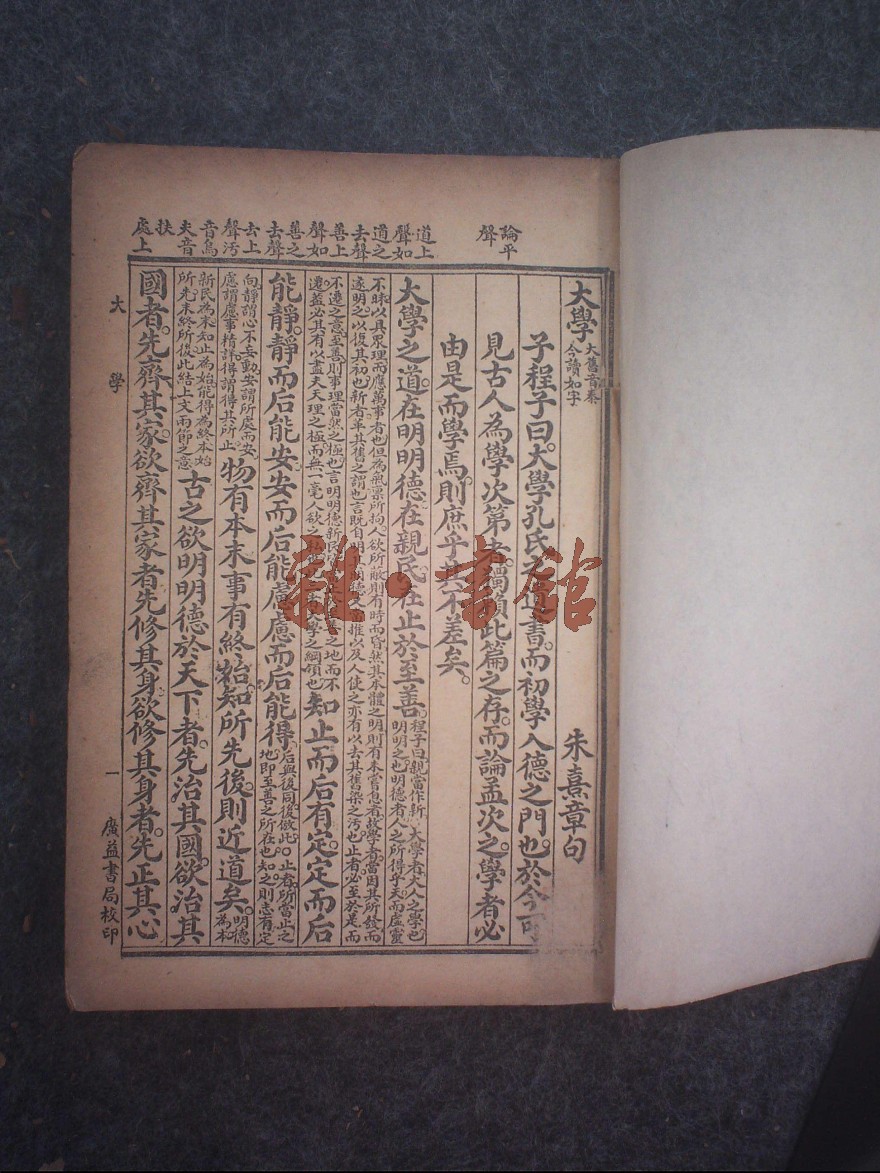 論平
聲
道上
聲如
道之
去聲
善上
聲如
善之
去聲
去上
聲汚
音烏
夫音
扶
處上
大學 大舊音泰
今讀如字
朱熹章句
子程子曰。大學孔氏之遺書。而初學入德之門也。於今可
見古人為學次第者。獨賴此篇之存。而論孟次之。學者必
由是而學焉。則庶乎其不差矣。
大學之道。在明明德。在親民。在止於至善。
程子曰。親當作新。大學者。大人之學也
明。明之也。明德者。人之所得乎天。而虛靈
不昧。以具眾理而應萬事者也。但為氣稟所拘。人欲所蔽。則有時而昏。然其本體之明。則有未嘗息者。故學者當因其所發而
遂明之。以復其初也。新者。革其舊之謂也。言既自明其明德。又當推以及人。使之亦有以去其舊染之汚也。止者。必至於是而
不遷之意。至善。則事理當然之極也。言明明德新民。至善之地而不
遷。蓋必其有以盡夫天理之極。而無一毫人欲之私大學之綱領也
知止而后有定。定而后
能靜。靜而后能安。安而后能慮。慮而后能得。
后與後同。後倣此。○止者。所當止之
地。即至善之所在也。知之。則志有定
向。靜。謂心不妄動。安。謂所處而安。
慮。謂慮事精詳。得。謂得其所止
物有本末。事有終始。知所先後。則近道矣。
明德
為本
新民為末。知止為始。能得為終。本始
所先。末終所後。此結上文兩節之意
古之欲明明德於天下者。先治其國。欲治其
國者。先齊其家。欲齊其家者。先修其身。欲修其身者。先正其心
大學
一
廣益書局校印
雜·書館